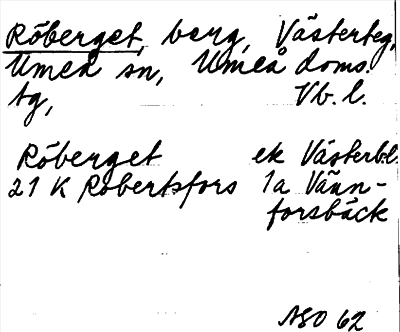 Röberget, berg, Västerteg,
Umeå sn, Umeå doms.
tg, Vb. l.
Röberget ek Västerb.l.
21 K Robertsfors 1a Vänn-
forsbäck
ASO 62